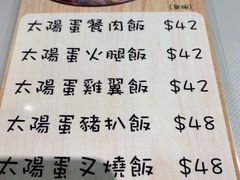 太陽蛋餐肉飯 $42
太陽蛋火腿飯 $42
太陽蛋雞翼飯 $42
太陽蛋豬扒飯 $48
太陽蛋叉燒飯 $48